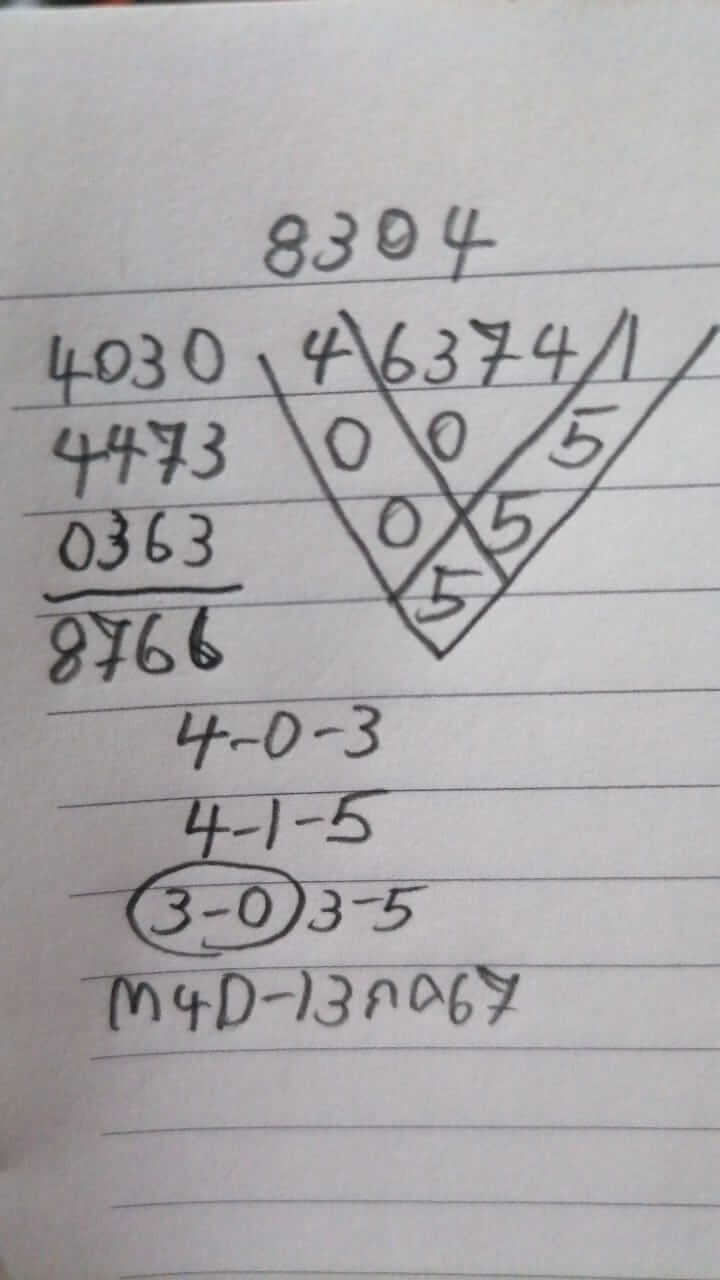 8304
4030 4 6 3 7 4 1
4473 0 0 5
0363 0 5
8766 5
4-0-3
4-1-5
3-0 3-5